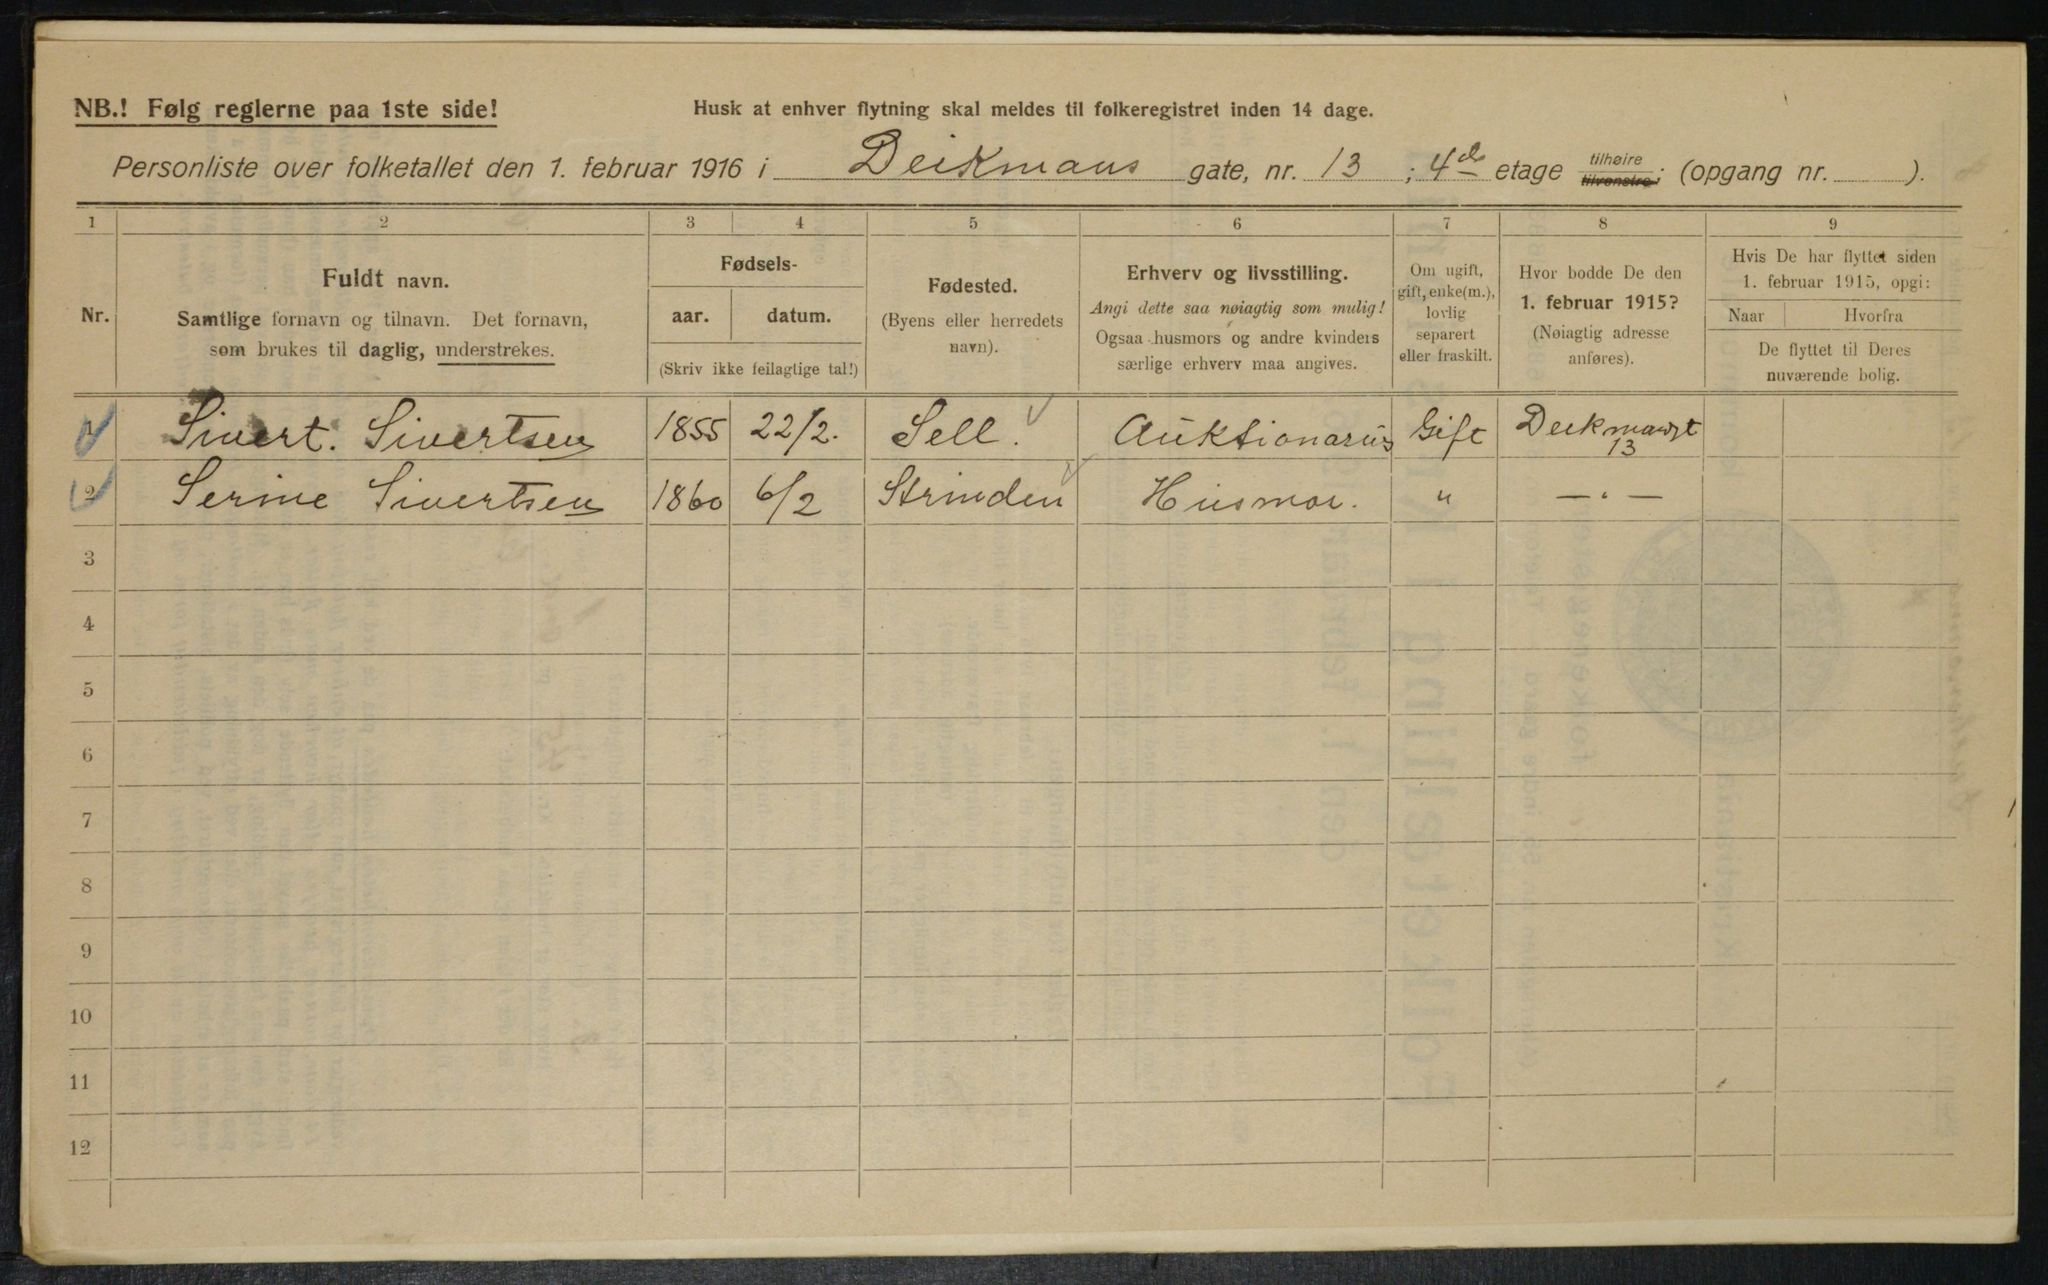 NB.! Følg reglerne paa 1ste side!
Husk at enhver flytning skal meldes til folkeregistret inden 14 dage.
Personliste over folketallet den 1. februar 1916 i Deikmans gate, nr. 13 ; 4de etage tilhøire tilvenstre; (opgang nr. ).
1 2 3 4 5 6 7 8 9
Nr.
Fuldt navn.
Samtlige fornavn og tilnavn. Det fornavn,
som brukes til daglig, understrekes.
Fødsels-
aar. datum.
(Skriv ikke feilagtige tal!)
Fødested.
(Byens eller herredets
navn).
Erhverv og livsstilling.
Angi dette saa nøiagtig som mulig!
Ogsaa husmors og andre kvinders
særlige erhverv maa angives.
Om ugift,
gift, enke(m.),
lovlig
separert
eller fraskilt.
Hvor bodde De den
1. februar 1915?
(Nøiagtig adresse
anføres).
Hvis De har flyttet siden
1. februar 1915, opgi:
Naar Hvorfra
De flyttet til Deres
nuværende bolig.
1 Sivert. Sivertsen 1855 22/2. Sell. Auktionarius Gift Deikmansgt
13
2 Serine Sivertsen 1860 6/2 Strinden Husmor. " — " —
3
4
5
6
7
8
9
10
11
12